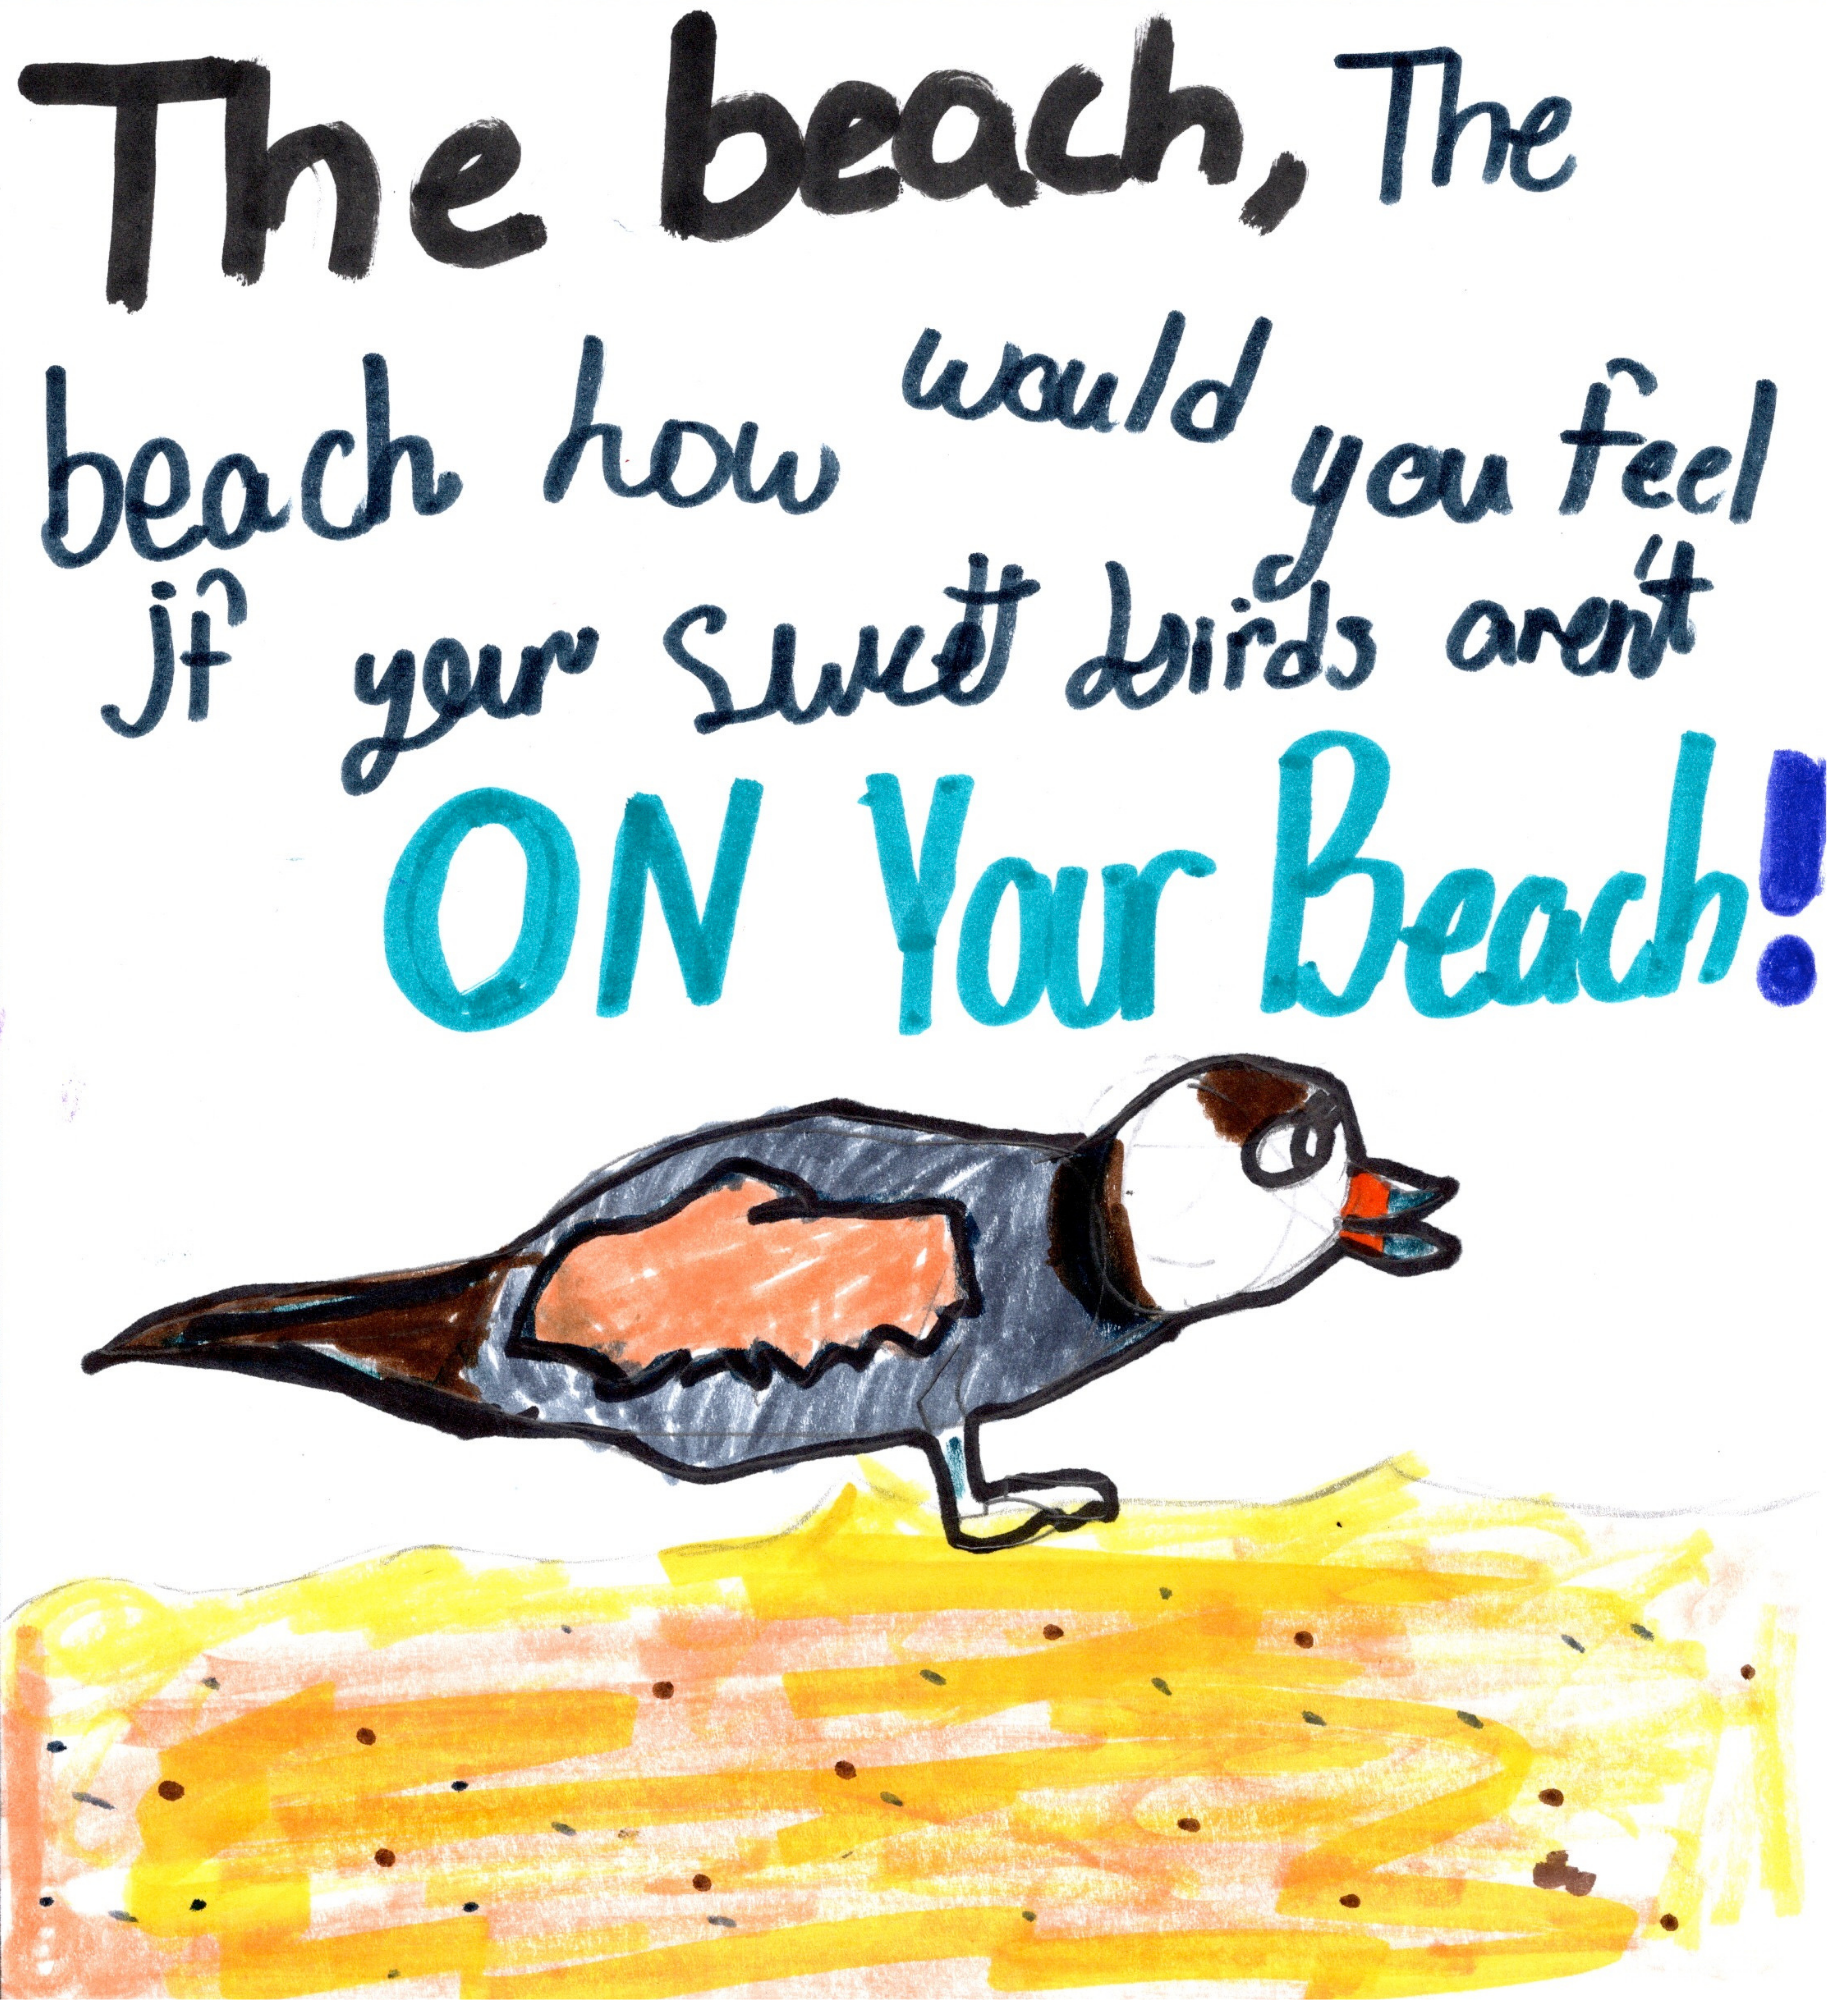 The beach, The
beach how would you feel
if your sweet birds aren't
ON Your Beach!